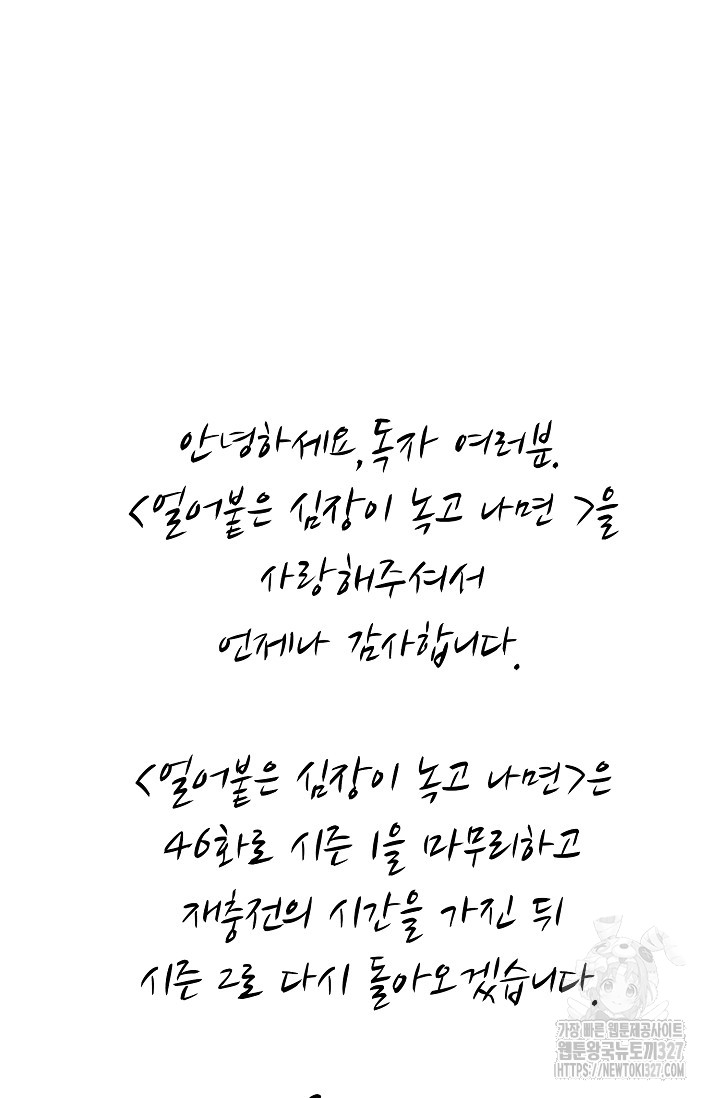 안녕하세요, 독자 여러분.
<얼어붙은 심장이 녹고 나면 >을
사랑해주셔서
언제나 감사합니다.
<얼어붙은 심장이 녹고 나면>은
46화로 시즌 1을 마무리하고
재충전의 시간을 가진 뒤
시즌 2로 다시 돌아오겠습니다.
가장 빠른 웹툰제공사이트
웹툰왕국뉴토끼327
HTTPS://NEWTOKI327.COM